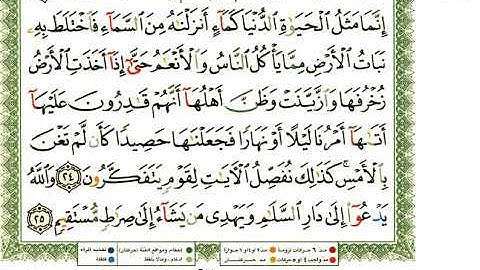 إِنَّمَا مَثَلُ ٱلْحَيَوٰةِ ٱلدُّنْيَا كَمَآءٍ أَنزَلْنَٰهُ مِنَ ٱلسَّمَآءِ فَٱخْتَلَطَ بِهِۦ
نَبَاتُ ٱلْأَرْضِ مِمَّا يَأْكُلُ ٱلنَّاسُ وَٱلْأَنْعَٰمُ حَتَّىٰٓ إِذَآ أَخَذَتِ ٱلْأَرْضُ
زُخْرُفَهَا وَٱزَّيَّنَتْ وَظَنَّ أَهْلُهَآ أَنَّهُمْ قَٰدِرُونَ عَلَيْهَآ
أَتَىٰهَآ أَمْرُنَا لَيْلًا أَوْ نَهَارًا فَجَعَلْنَٰهَا حَصِيدًا كَأَن لَّمْ تَغْنَ
بِٱلْأَمْسِ ۚ كَذَٰلِكَ نُفَصِّلُ ٱلْءَايَٰتِ لِقَوْمٍ يَتَفَكَّرُونَ ٢٤ وَٱللَّهُ
يَدْعُوٓا۟ إِلَىٰ دَارِ ٱلسَّلَٰمِ وَيَهْدِى مَن يَشَآءُ إِلَىٰ صِرَٰطٍ مُّسْتَقِيمٍ ٢٥
مد ٦ حركات لزوماً مد ٢ أو ٤ أو ٦ جوازاً
مد واجب ٤ أو ٥ حركات مد حركتان